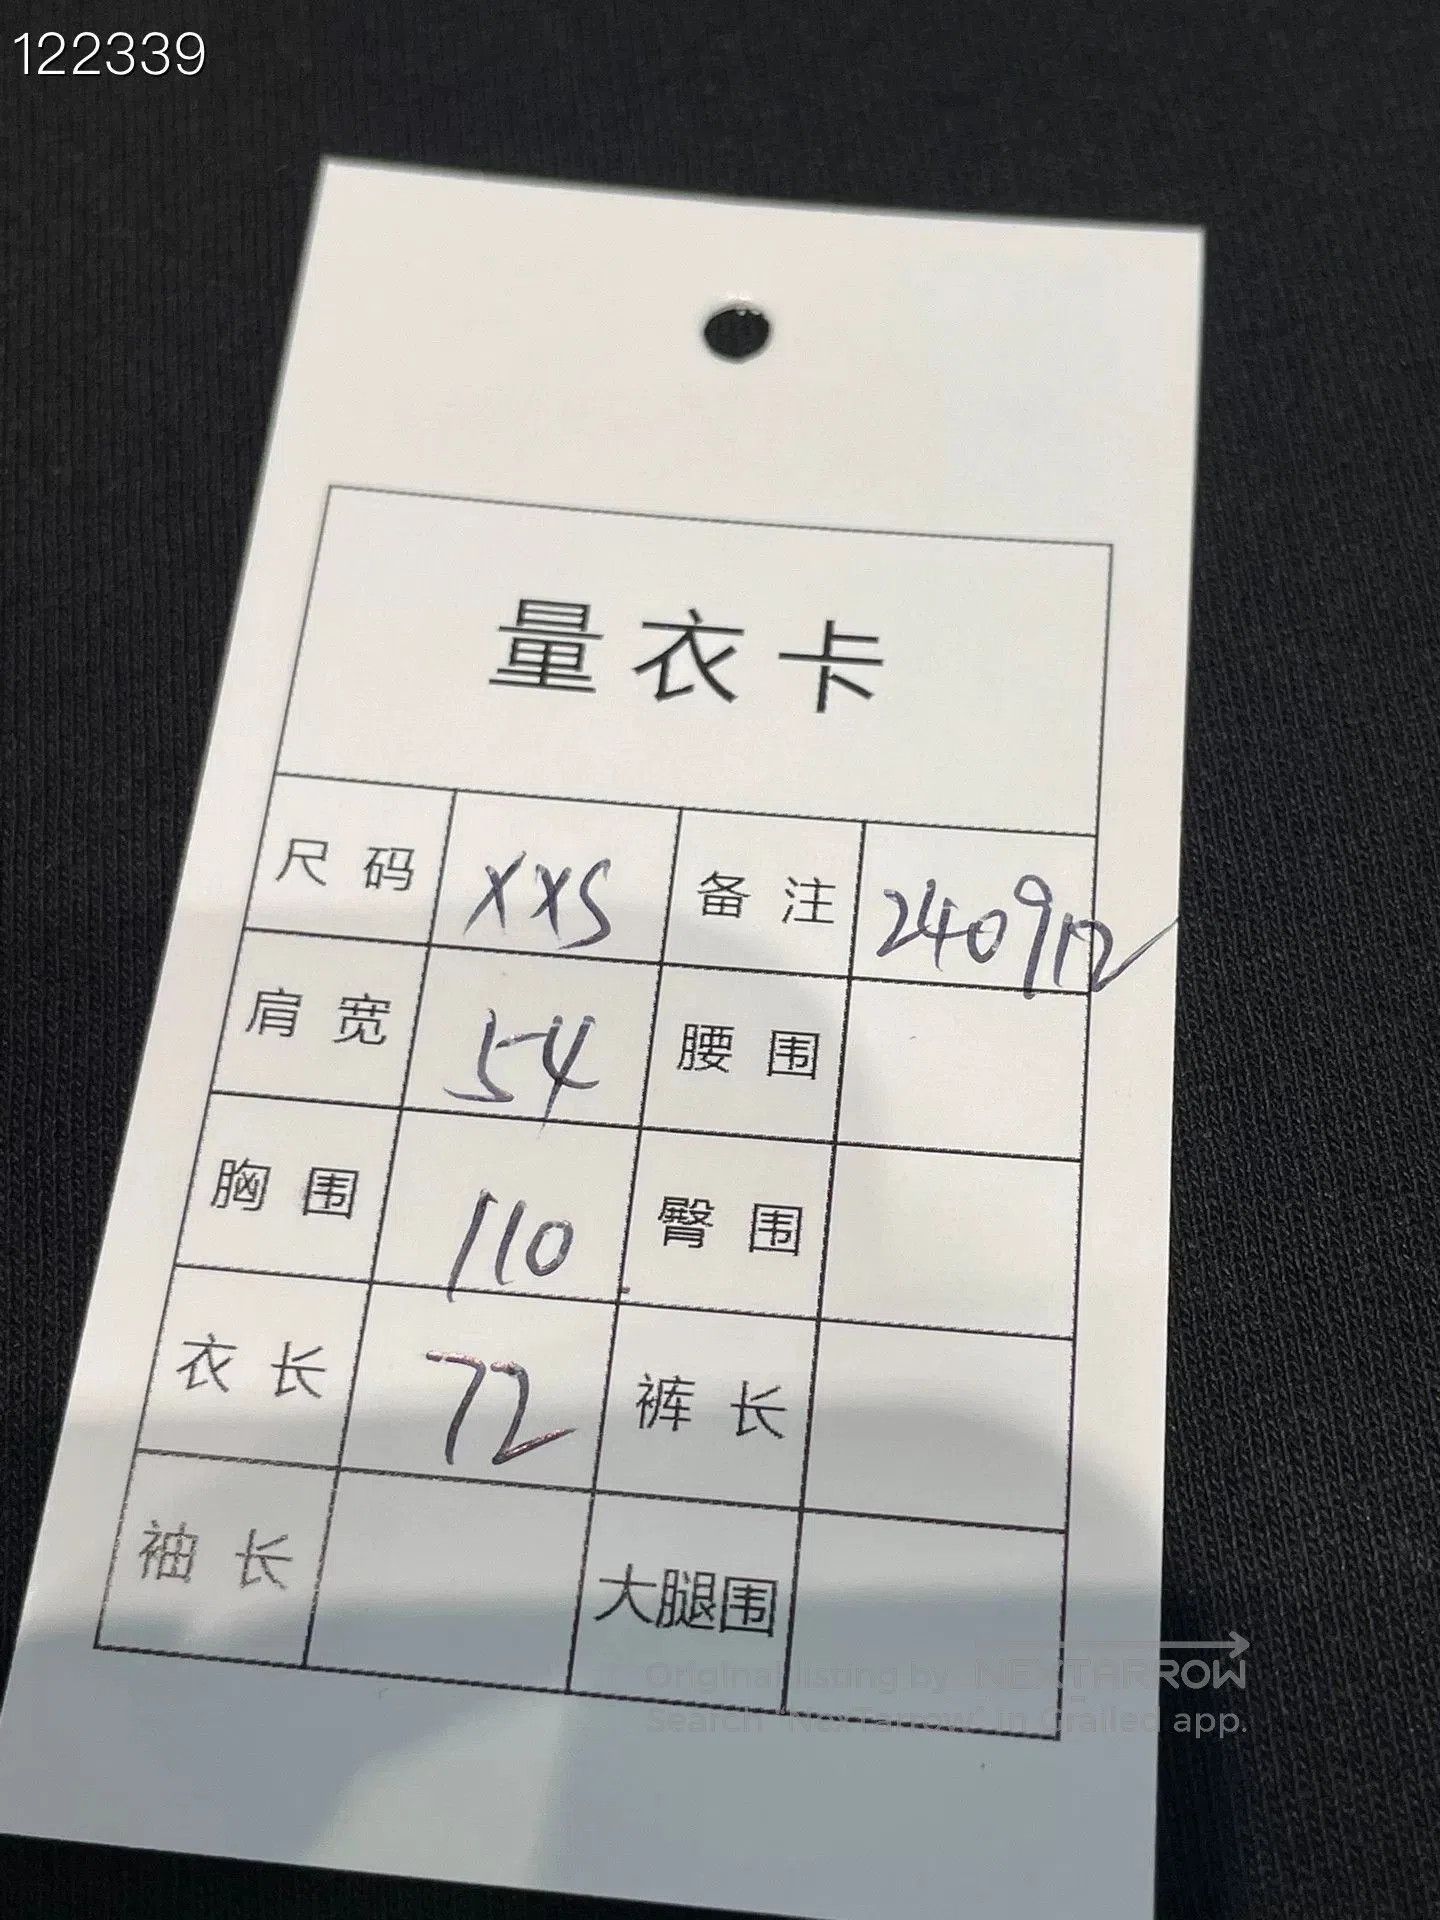 122339
量衣卡
尺码 XXS 备注 240912
肩宽 54 腰围
胸围 110 臀围
衣长 72 裤长
袖长 大腿围
Original listing by NEXTARROW
Search "NexTarrow" in Grailed app.